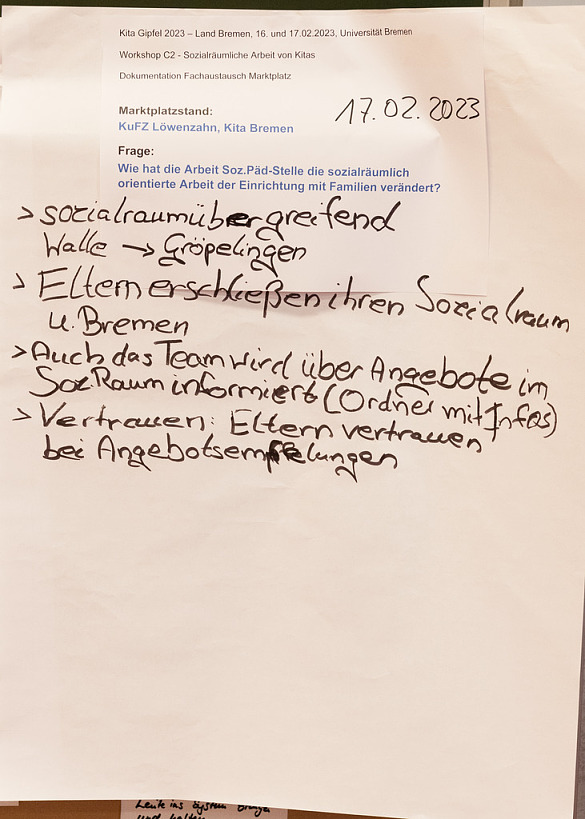 Kita Gipfel 2023 – Land Bremen, 16. und 17.02.2023, Universität Bremen
Workshop C2 - Sozialräumliche Arbeit von Kitas
Dokumentation Fachaustausch Marktplatz
17.02.2023
Marktplatzstand:
KuFZ Löwenzahn, Kita Bremen
Frage:
Wie hat die Arbeit Soz.Päd-Stelle die sozialräumlich
orientierte Arbeit der Einrichtung mit Familien verändert?
> sozialraumübergreifend
Walle → Gröpelingen
> Eltern erschließen ihren Sozialraum
u. Bremen
> Auch das Team wird über Angebote im
Soz.Raum informiert (Ordner mit Infos)
> Vertrauen: Eltern vertrauen
bei Angebotsempfelungen
Leute ins System bringen
und halten